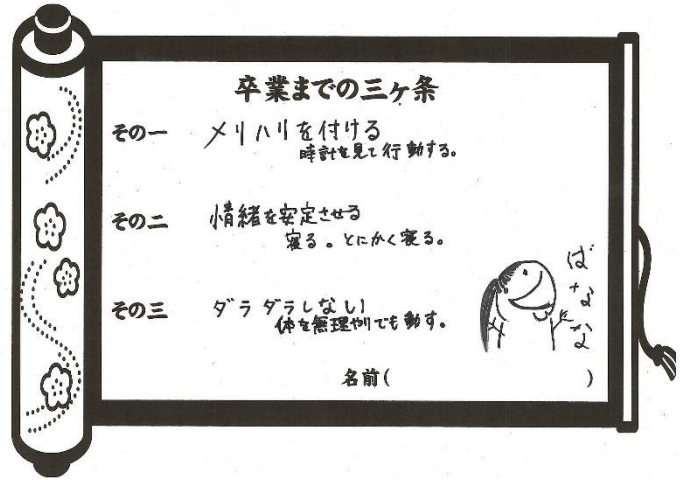 卒業までの三ヶ条
その一 メリハリを付ける
時計を見て行動する。
その二 情緒を安定させる
寝る。とにかく寝る。
その三 ダラダラしない
体を無理やりでも動す。
ばななかな
名前( )